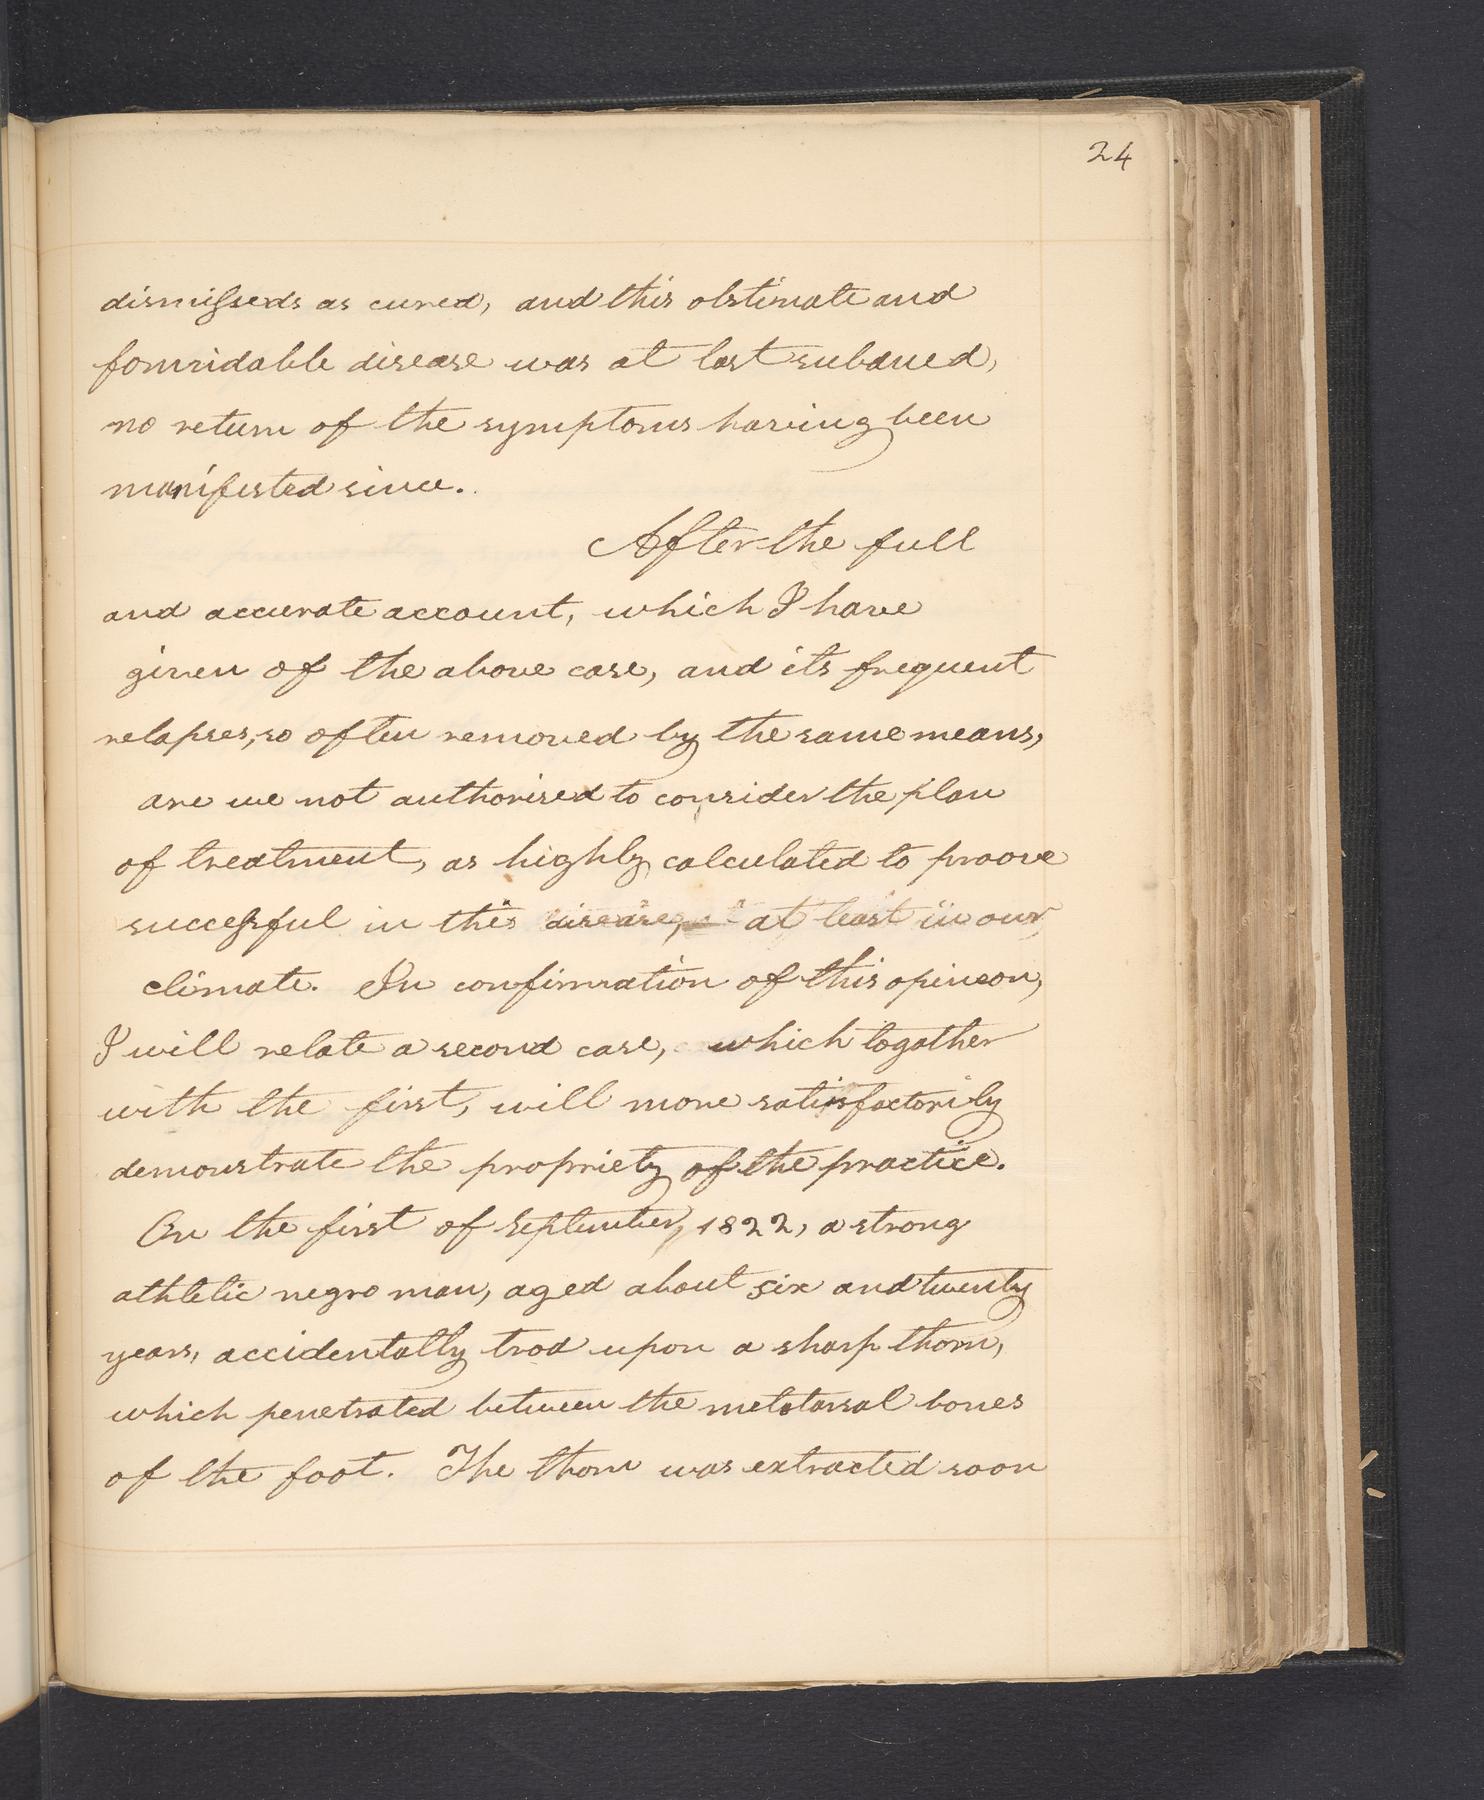 24
dismissed as cured, and this obstinate and
formidable disease was at last subdued,
no return of the symptoms having been
manifested since.
After the full
and accurate account, which I have
given of the above case, and its frequent
relapses, so often removed by the same means,
are we not authorised to consider the plan
of treatment, as highly calculated to proove
successful in this disease, at least in our
climate. In confirmation of this opinion,
I will relate a second case, which together
with the first, will more satisfactorily
demonstrate the propriety of the practice.
On the first of September, 1822, a strong
athletic negro man, aged about six and twenty
years, accidentally trod upon a sharp thorn,
which penetrated between the metatarsal bones
of the foot. The thorn was extracted soon